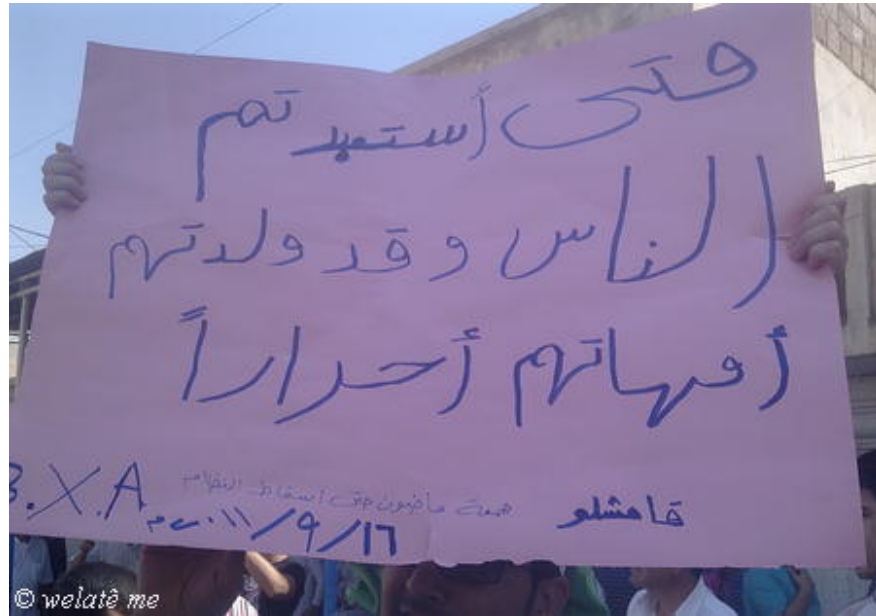 متى أستعبدتم
الناس وقد ولدتهم
أمهاتهم أحراراً
جمعة ماضون حتى اسقاط النظام
قامشلو
B.X.A
٢٠١١/٩/١٦م
© welatê me